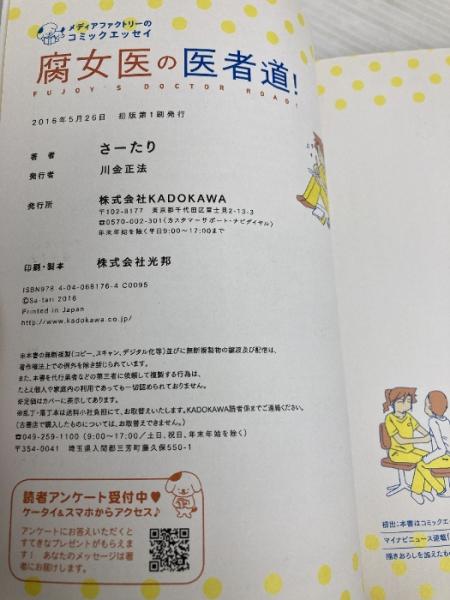 メディアファクトリーの
コミックエッセイ
腐女医の医者道!
FUJOY'S DOCTOR ROAD!
2016年5月26日 初版第1刷発行
著者 さーたり
発行者 川金正法
発行所 株式会社KADOKAWA
〒102-8177 東京都千代田区富士見2-13-3
☎0570-002-301(カスタマーサポート・ナビダイヤル)
年末年始を除く平日9:00〜17:00まで
印刷・製本 株式会社光邦
ISBN978-4-04-068176-4 C0095
©Sa-tari 2016
Printed in Japan
http://www.kadokawa.co.jp/
※本書の無断複製(コピー、スキャン、デジタル化等)並びに無断複製物の譲渡及び配信は、
著作権法上での例外を除き禁じられています。
また、本書を代行業者などの第三者に依頼して複製する行為は、
たとえ個人や家庭内の利用であっても一切認められておりません。
※定価はカバーに表示してあります。
※乱丁・落丁本は送料小社負担にて、お取替えいたします。KADOKAWA読者係までご連絡ください。
(古書店で購入したものについては、お取替えできません。)
☎049-259-1100(9:00〜17:00/土日、祝日、年末年始を除く)
〒354-0041 埼玉県入間郡三芳町藤久保550-1
読者アンケート受付中♥
ケータイ&スマホからアクセス♪
アンケートにお答えいただくと
すてきなプレゼントがもらえま
す! あなたのメッセージは著
者にお届けします。
初出:本書はコミックエ
マイナビニュース連載「
描きおろしを加えたもの